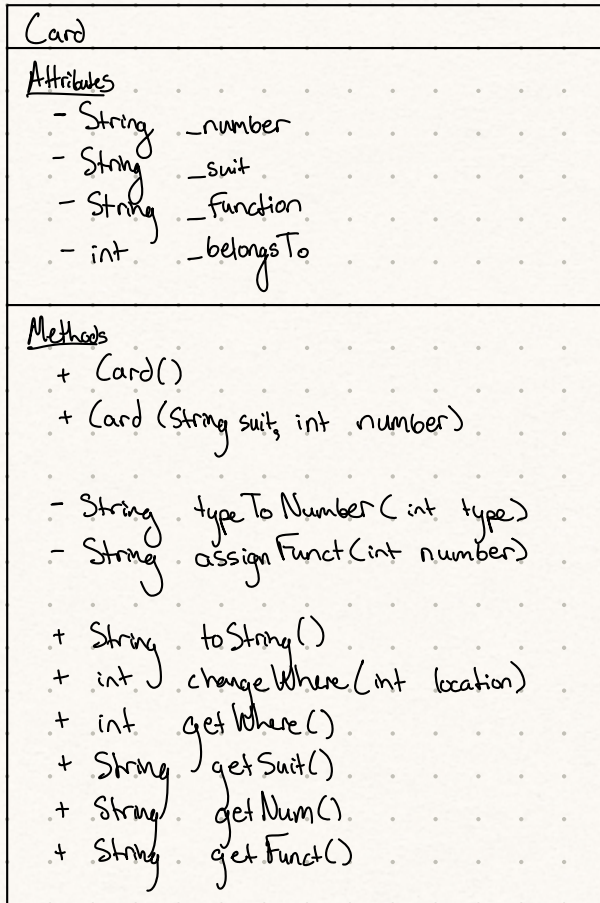 Card
Attributes
- String _number
- String _suit
- String _function
- int _belongsTo
Methods
+ Card()
+ Card (String suit, int number)
- String typeToNumber(int type)
- String assignFunct(int number)
+ String toString()
+ int changeWhere(int location)
+ int getWhere()
+ String getSuit()
+ String getNum()
+ String getFunct()